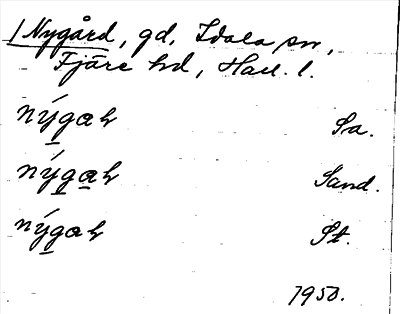 Nygård, gd. Idala sn,
Fjäre hd, Hall. l.
nýgaʀ Sa.
nýgaʀ Sand.
nýgaʀ St.
1950.